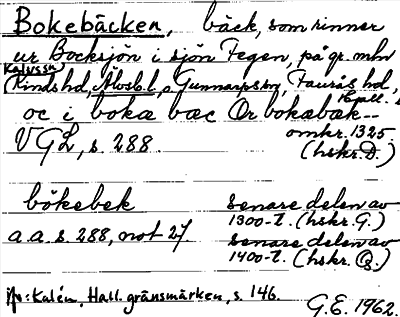 Bokebäcken, bäck, som rinner
ur Bocksjön i sjön Fegen, på gr. mln
Kalvssn,
Kinds hd, Älvsb. l., Gunnarpskn, Faurås hd,
Hall. l.
oc i boka bæc Or bokæbæk--
VGL, s. 288.
omkr. 1325
(hskr. D.)
bökebek
senare delen av
1300-t. (hskr. G.)
a.a. s. 288, not 27.
senare delen av
1400-t. (hskr. Q.)
Kalén, Hall. gränsmärken, s. 146.
G.E. 1962.